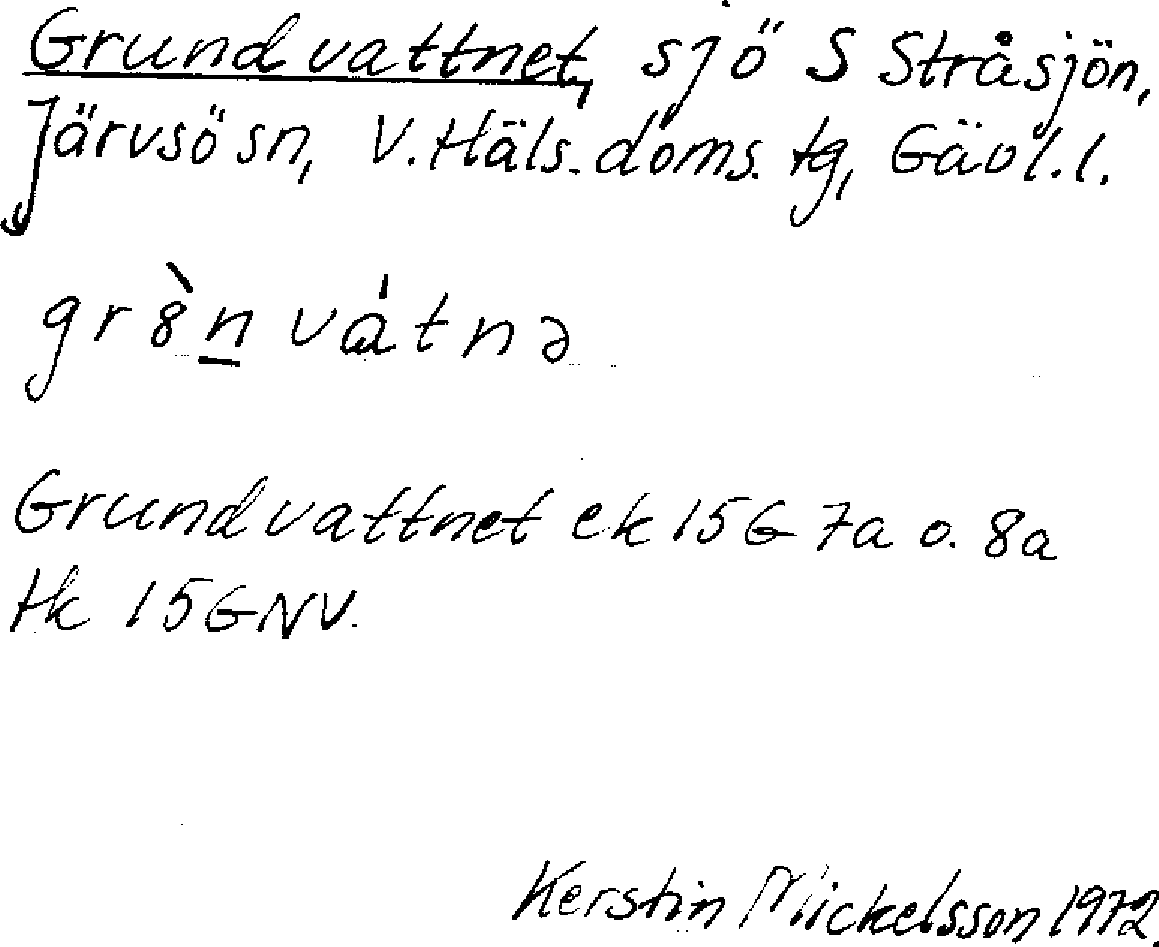 Grundvattnet, sjö S Stråsjön,
Järvsö sn, V. Häls. doms. tg, Gävl. l.
gr8̀n̲ vɷ́tnə
Grundvattnet ek 15G 7a o. 8a
tk 15G NV.
Kerstin Mickelsson 1972.